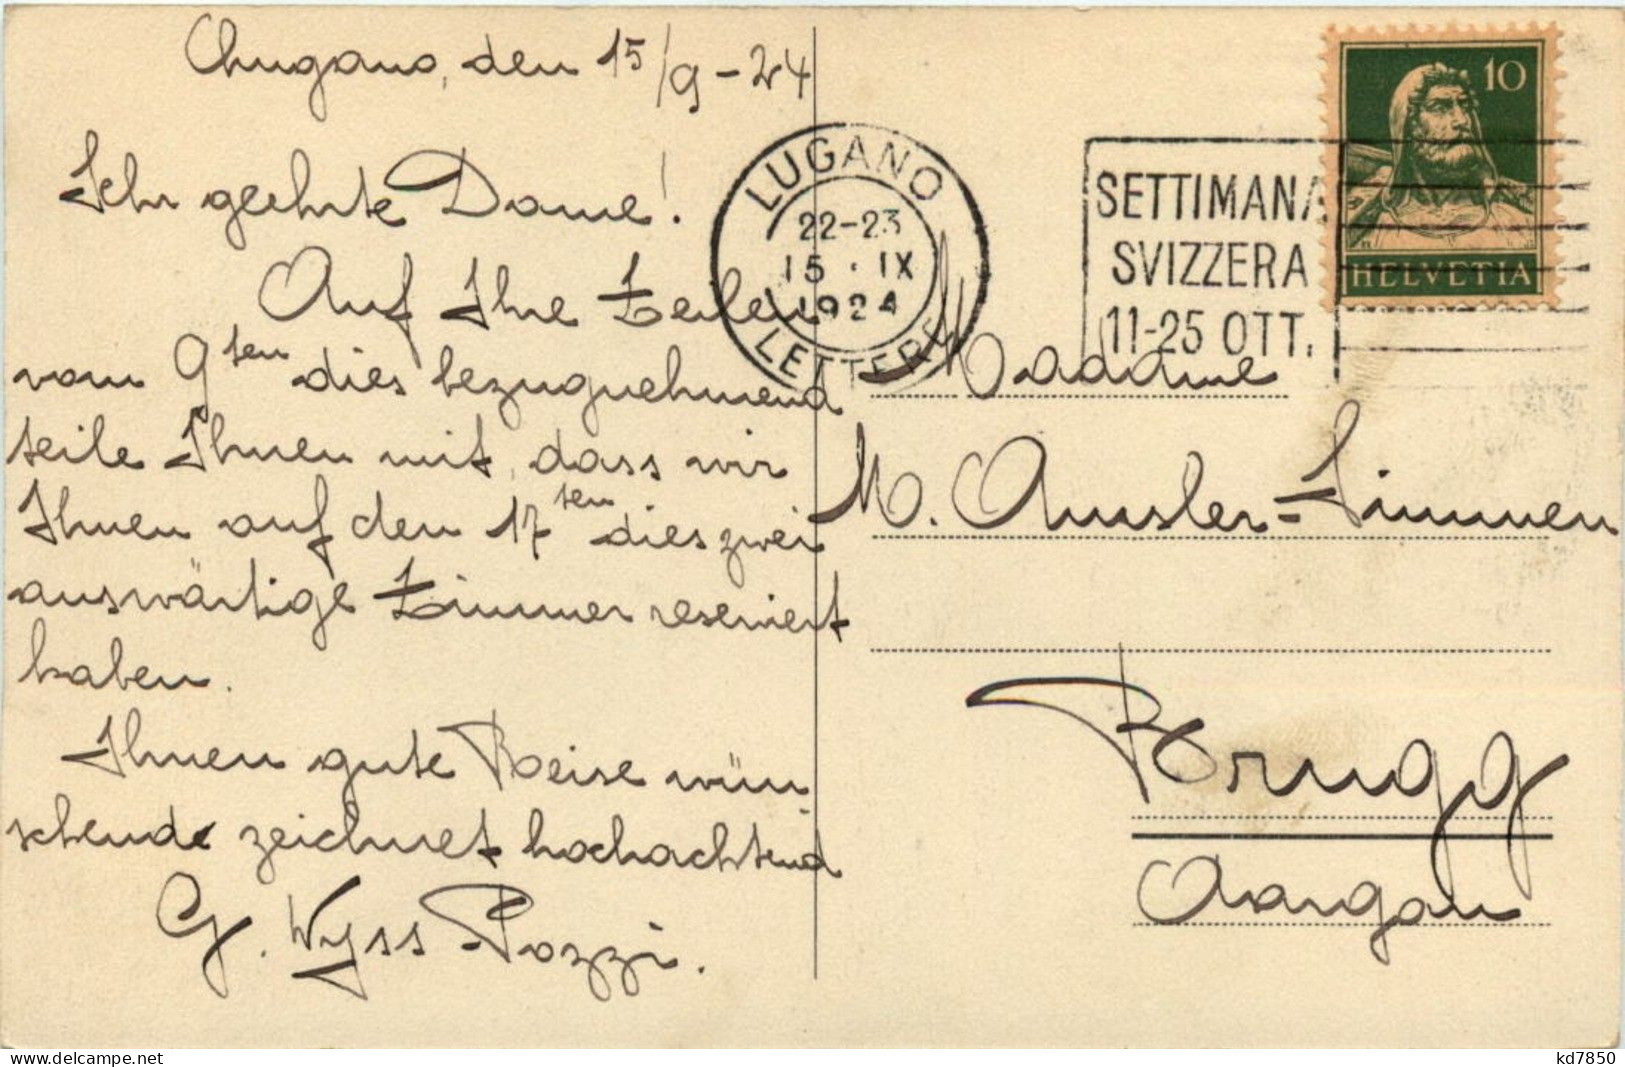 Lugano, den 15/9 - 24
Sehr geehrte Dame!
Auf Ihre Zeilen
vom 9ten dies bezugnehmend
teile Ihnen mit, dass wir
Ihnen auf den 17ten dies zwei
auswärtige Zimmer reserviert
haben.
Ihnen gute Reise wün
schend zeichnet hochachtend
G. Wyss-Pozzi.
LUGANO
22-23
15 · IX
1924
LETTERE
SETTIMANA
SVIZZERA
11-25 OTT.
10
HELVETIA
Madame
M. Amsler-Simmen
Brugg
Aargau
kd7850
www.delcampe.net